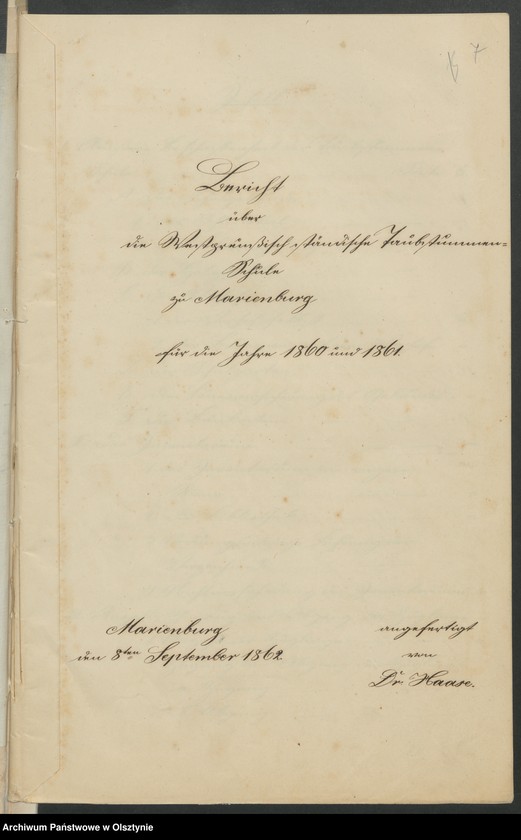 7
Bericht
über
die Westpreußisch ständische Taubstummen-
Schule
zu Marienburg
für die Jahre 1860 und 1861.
Marienburg,
den 8ten September 1862.
angefertigt
von
Dr. Haase.
Archiwum Państwowe w Olsztynie